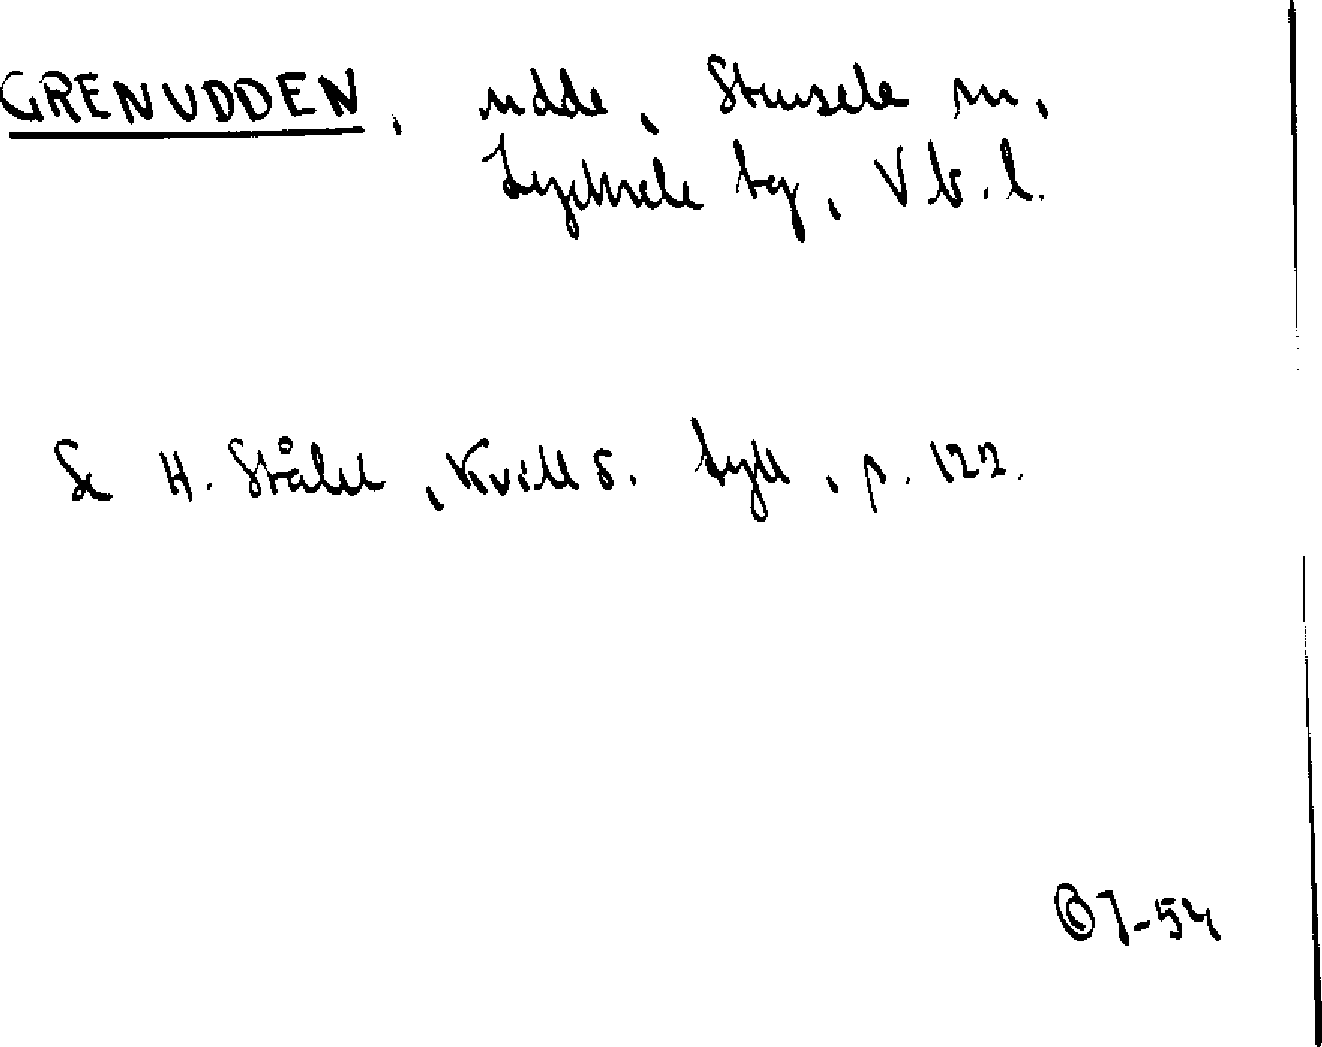 GRENUDDEN, udde, Strusele sn,
Lycksele tg, Vb. l.
Se H. Ståhl, Kvill o. tyll, p. 122.
7-54